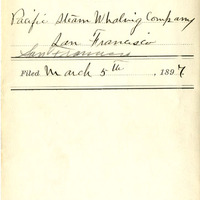 Pacific Steam Whaling Company
San Francisco
San Francisco
Filed March 5th, 1897